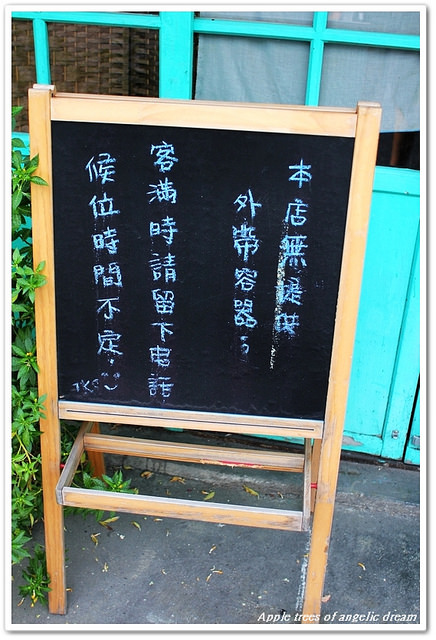 本店無提供
外帶容器。
客滿時請留下電話
候位時間不定
Apple trees of angelic dream